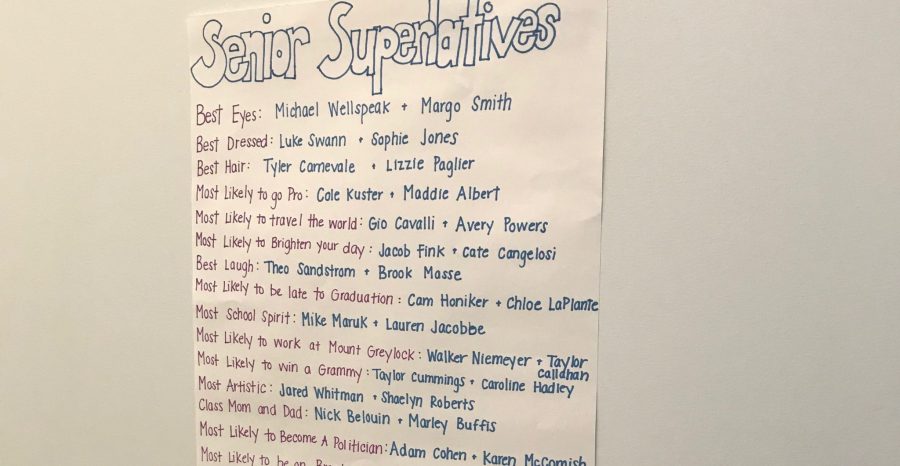 Senior Superlatives
Best Eyes: Michael Wellspeak + Margo Smith
Best Dressed: Luke Swann + Sophie Jones
Best Hair: Tyler Carnevale + Lizzie Paglier
Most Likely to go Pro: Cole Kuster + Maddie Albert
Most Likely to travel the world: Gio Cavalli + Avery Powers
Most Likely to Brighten your day: Jacob Fink + Cate Cangelosi
Best Laugh: Theo Sandstrom + Brook Masse
Most Likely to be late to Graduation: Cam Honiker + Chloe LaPlante
Most School Spirit: Mike Maruk + Lauren Jacobbe
Most Likely to work at Mount Greylock: Walker Niemeyer + Taylor
Callahan
Most Likely to win a Grammy: Taylor Cummings + Caroline Hadley
Most Artistic: Jared Whitman + Shaelyn Roberts
Class Mom and Dad: Nick Belouin + Marley Buffis
Most Likely to Become A Politician: Adam Cohen + Karen McComish
Most Likely to be on